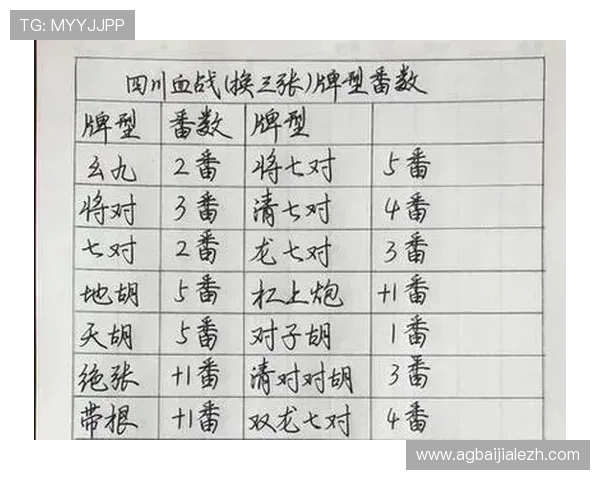 TG: MYYJJPP
四川血战(换三张)牌型番数
牌型 番数 牌型
幺九 2番 将七对 5番
将对 3番 清七对 4番
七对 2番 龙七对 3番
地胡 5番 杠上炮 +1番
天胡 5番 对子胡 1番
绝张 +1番 清对对胡 3番
带根 +1番 双龙七对 4番
www.agbaijialezh.com